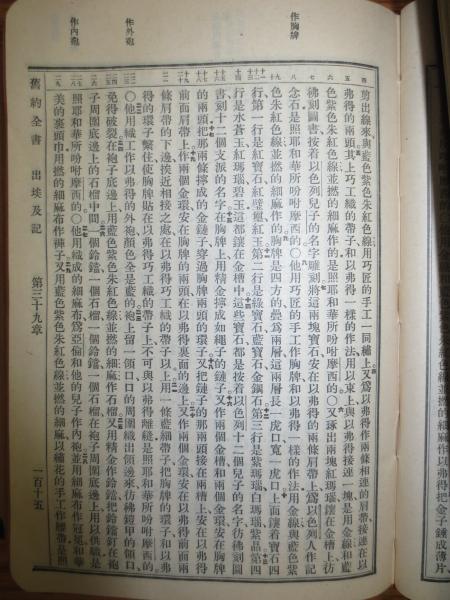 作胸牌
作外袍
作內袍
剪出線來與藍色紫色朱紅色線用巧匠的手工一同繡上又爲以弗得作兩條相連的肩帶接連在以
弗得的兩頭其上巧工織的帶子和以弗得一樣的作法用以束上與以弗得接連一塊是用金線和藍
色紫色朱紅色線並撚的細麻作的是照耶和華所吩咐摩西的○又琢出兩塊紅瑪瑙鑲在金槽上彷
彿刻圖書按着以色列兒子的名字雕刻將這兩塊寶石安在以弗得的兩條肩帶上爲以色列人作記
念石是照耶和華所吩咐摩西的○他用巧匠的手工作胸牌和以弗得一樣的作法用金線與藍色紫
色朱紅色線並撚的細麻作的胸牌是四方的疊爲兩層這兩層長一虎口寬一虎口上面鑲着寶石四
行第一行是紅寶石紅璧璽紅玉第二行是綠寶石藍寶石金鋼石第三行是紫瑪瑙白瑪瑙紫晶第四
行是水蒼玉紅瑪瑙碧玉這都鑲在金槽中這些寶石都是按着以色列十二個兒子的名字彷彿刻圖
書刻十二個支派的名字在胸牌上用精金擰成如繩子的鏈子又作兩個金槽和兩個金環安在胸牌
的兩頭把那兩條擰成的金鏈子穿過胸牌兩頭的環子又把鏈子的那兩頭接在兩槽上安在以弗得
前面肩帶上作兩個金環安在胸牌的兩頭在以弗得裏面的邊上又作兩個金環安在以弗得前面兩
條肩帶的下邊挨近相接之處在以弗得巧工織的帶子以上用一條藍細帶子把胸牌的環子和以弗
得的環子繫住使胸牌貼在以弗得巧工織的帶子上不可與以弗得離縫是照耶和華所吩咐摩西的
○他用織工作以弗得的外袍顏色全是藍的袍上留一領口口的周圍織出領邊來彷彿鎧甲的領口
免得破裂在袍子底邊上用藍色紫色朱紅色線並撚的細麻作石榴又用精金作鈴鐺把鈴鐺釘在袍
子周圍底邊上的石榴中間一個鈴鐺一個石榴一個鈴鐺一個石榴在袍子周圍底邊上用以供職是
照耶和華所吩咐摩西的○他用織成的細麻布爲亞倫和他的兒子作內袍並用細麻布作冠冕和華
美的裹頭巾用撚的細麻布作褲子又用藍色紫色朱紅色線並撚的細麻以繡花的手工作腰帶是照
舊約全書 出埃及記 第三十九章 一百十五